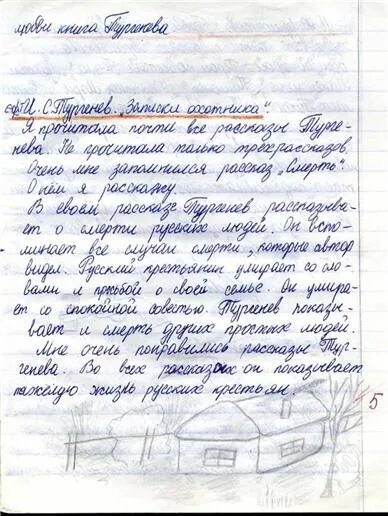 любви книга Тургенева
И. С. Тургенев. „Записки охотника".
Я прочитала почти все рассказы Турге-
нева. Не прочитала только трёх рассказов.
Очень мне запомнился рассказ „Смерть".
О нём я расскажу.
В своём рассказе Тургенев рассказыва-
ет о смерти русских людей. Он вспо-
минает все случаи смерти, которые автор
видел. Русский крестьянин умирает со сло-
вами и прозьбой о своей семье. Он умира-
ет со спокойной совестью. Тургенев показы-
вает и смерть других простых людей.
Мне очень понравились рассказы Тур-
генева. Во всех рассказах он показывает
тяжёлую жизнь русских крестьян.
5